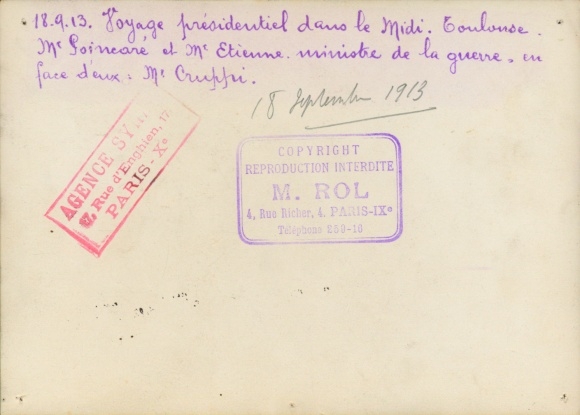 18.9.13. Voyage présidentiel dans le Midi. Toulouse.
Mr Poincaré et Mr Etienne. ministre de la guerre. en
face d'eux : Mr Cruppi.
18 Septembre 1913
AGENCE
Rue d'Enghien, 17
PARIS-Xe
COPYRIGHT
REPRODUCTION INTERDITE
M. ROL
4, Rue Richer, 4. PARIS-IXe
Téléphone 259-10